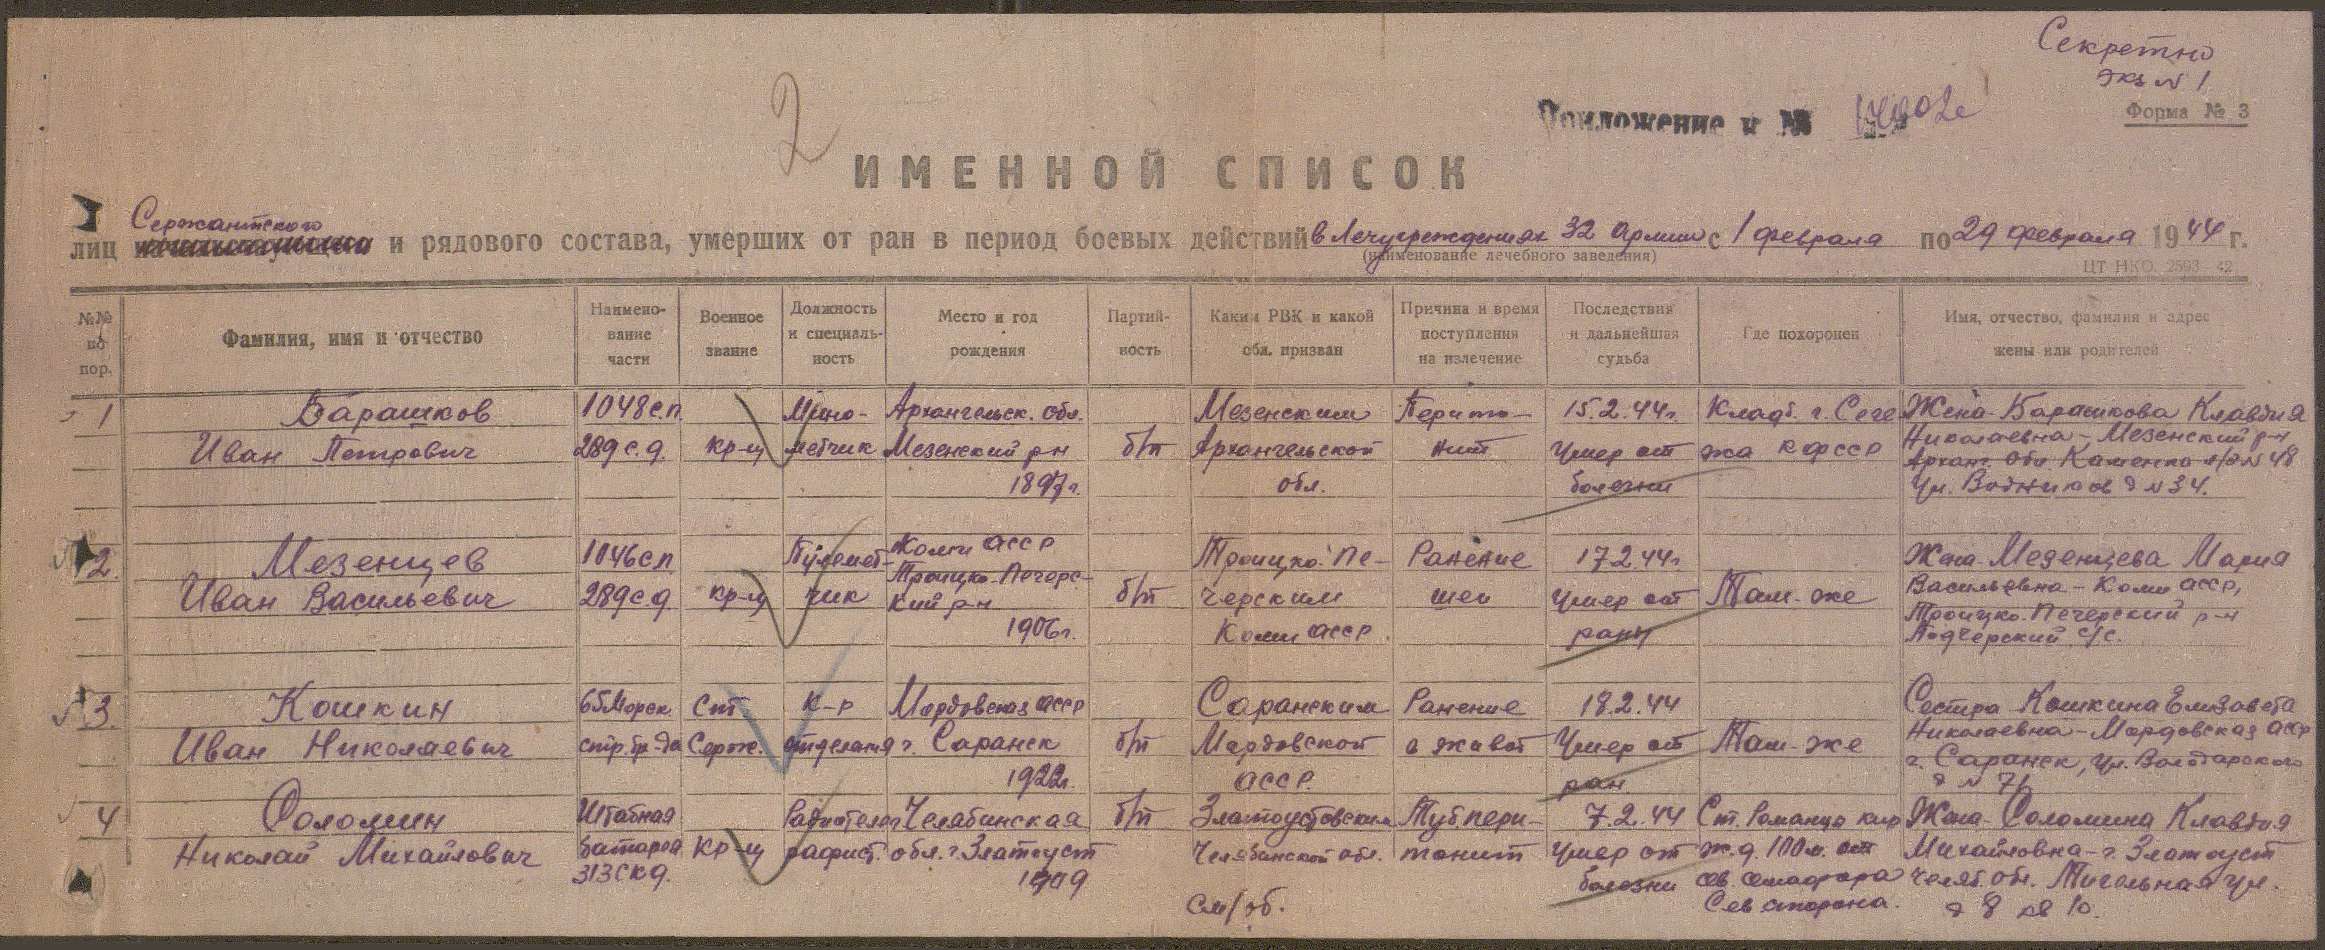 Секретно
экз N 1
2
Приложение к №
Форма № 3
ИМЕННОЙ СПИСОК
Сержантского
лиц и рядового состава, умерших от ран в период боевых действий в Лечучреждениях 32 Армии с 1 февраля по 29 февраля 1944 г.
(наименование лечебного заведения)
ЦТ НКО. 2593 42
№№ по пор.
Фамилия, имя и отчество
Наимено-
вание
части
Военное
звание
Должность
и специаль-
ность
Место и год
рождения
Партий-
ность
Каким РВК и какой
обл. призван
Причина и время
поступления
на излечение
Последствия
и дальнейшая
судьба
Где похоронен
Имя, отчество, фамилия и адрес
жены или родителей
1 Барашков 1048 с.п. Мино- Архангельск. обл. Мезенским Перито- 15.2.44г. Кладб. г. Сеге Жена-Барашкова Клавдия
Иван Петрович 289 с.д. кр-ц метчик Мезенский р-н б/п Архангельской нит Умер от жа КФССР Николаевна-Мезенский р-н
1897г. обл. болезни Арханг. обл. Каменка N 48
Ул. Водников д N 34.
2. Мезенцев 1046 с.п. Пулемет- Коми АССР Троицко-Пе- Ранение 17.2.44г. Жена-Мезенцева Мария
Иван Васильевич 289 с.д. кр-ц чик Троицко-Печорс- б/п черским шеи Умер от Там-же Васильевна-Коми АССР,
кий р-н Троицко-Печерский р-н
1906г. Коми АССР. раны Подчерский с/с.
3. Кошкин 65 Морск. Ст. К-р Мордовская АССР Саранским Ранение 18.2.44 Сестра Кошкина Елизавета
Иван Николаевич стр. бр-да Серж. отделения г. Саранск б/п Мордовской в живот Умер от Там-же Николаевна-Мордовская АССР
1922г. АССР. ран г. Саранск, ул. Володарского
д N 71
4 Соломин Штабная Радиотелег Челябинская б/п Златоустовским Туб. пери- 7.2.44 Ст. Романцы кир Жена-Соломина Клавдия
Николай Михайлович батарея Кр-ц рафист. обл. г. Златоуст Челябинской обл. тонит Умер от ж.д. 100м. от Михайловна-г. Златоуст
313 с.к.д. 1909 болезни сев. семафора Челяб. обл. ул.
см/об. Сев сторона. д 8 кв 10.